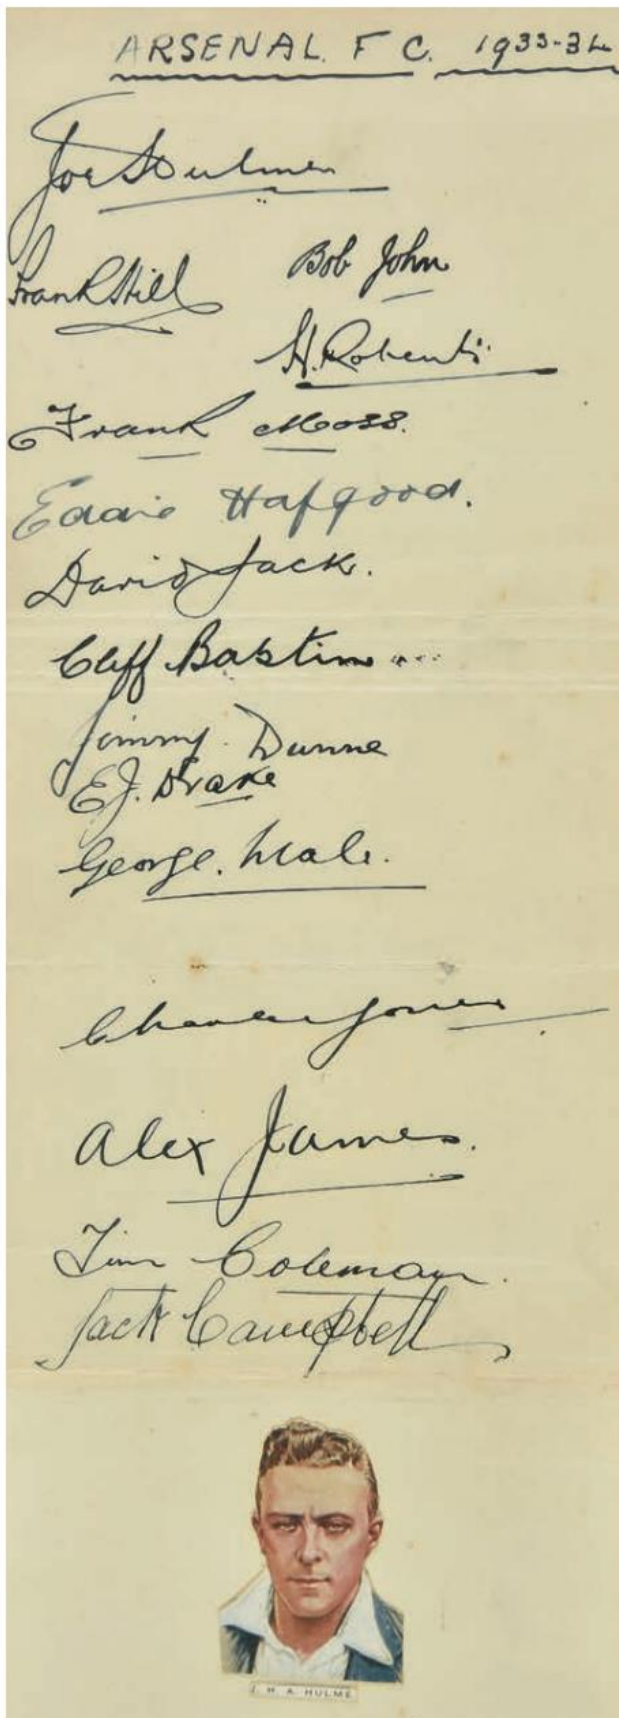 ARSENAL. F C. 1933-34
Joe Hulme
Frank Hill
Bob John
H. Roberts
Frank Moss.
Eddie Hapgood.
David Jack.
Cliff Bastin...
Jimmy. Dunne
E.J. Drake
George. Male.
Charlie Jones
Alex James.
Tim Coleman.
Jack Campbell
J. H. A. HULME